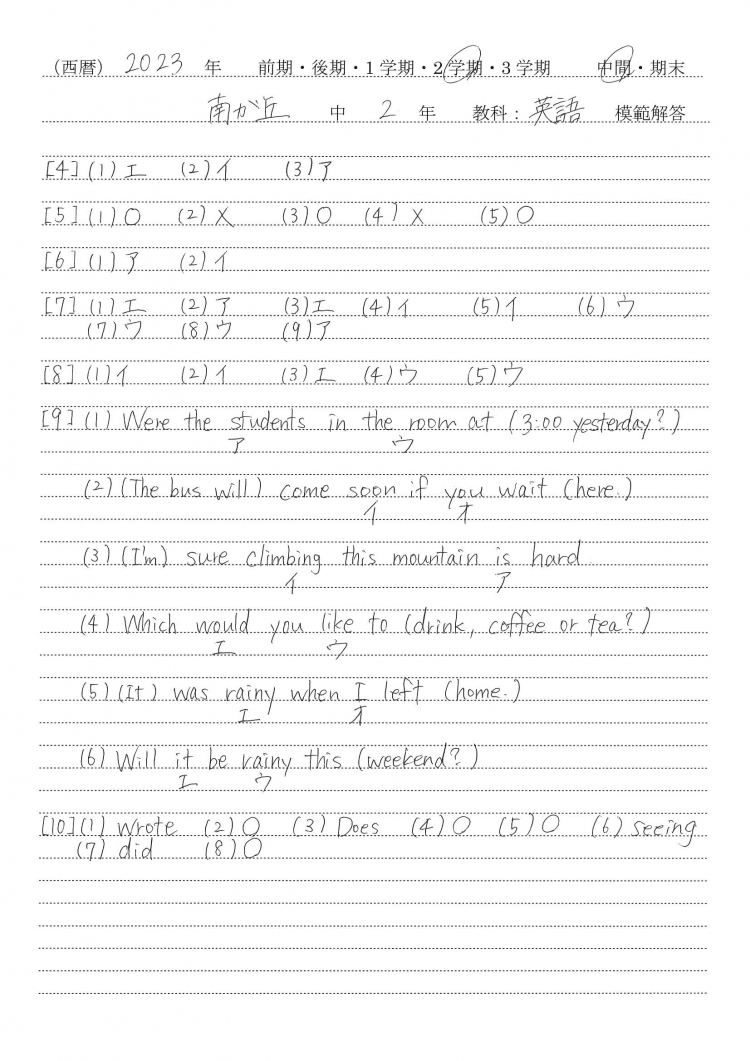 (西暦) 2023 年 前期・後期・1学期・2学期・3学期 中間・期末
南が丘 中 2 年 教科：英語 模範解答
[4](1)エ (2)イ (3)ア
[5](1)○ (2)× (3)○ (4)× (5)○
[6](1)ア (2)イ
[7](1)エ (2)ア (3)エ (4)イ (5)イ (6)ウ
(7)ウ (8)ウ (9)ア
[8](1)イ (2)イ (3)エ (4)ウ (5)ウ
[9](1) Were the students in the room at (3:00 yesterday?)
ア ウ
(2)(The bus will) come soon if you wait (here.)
イ オ
(3)(I'm) sure climbing this mountain is hard.
イ ア
(4) Which would you like to (drink, coffee or tea?)
エ ウ
(5)(It) was rainy when I left (home.)
エ オ
(6) Will it be rainy this (weekend?)
エ ウ
[10](1) wrote (2)○ (3) Does (4)○ (5)○ (6) seeing
(7) did (8)○